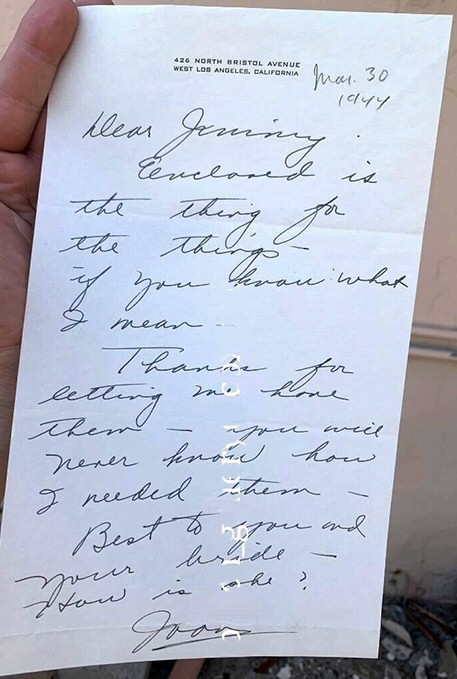 426 NORTH BRISTOL AVENUE
WEST LOS ANGELES, CALIFORNIA
Mar. 30
1944
Dear Jimmy.
Enclosed is
the thing for
the things –
if you know what
I mean –
Thanks for
letting me have
them – you will
never know how
I needed them –
Best to you and
your bride –
How is she?
Joan